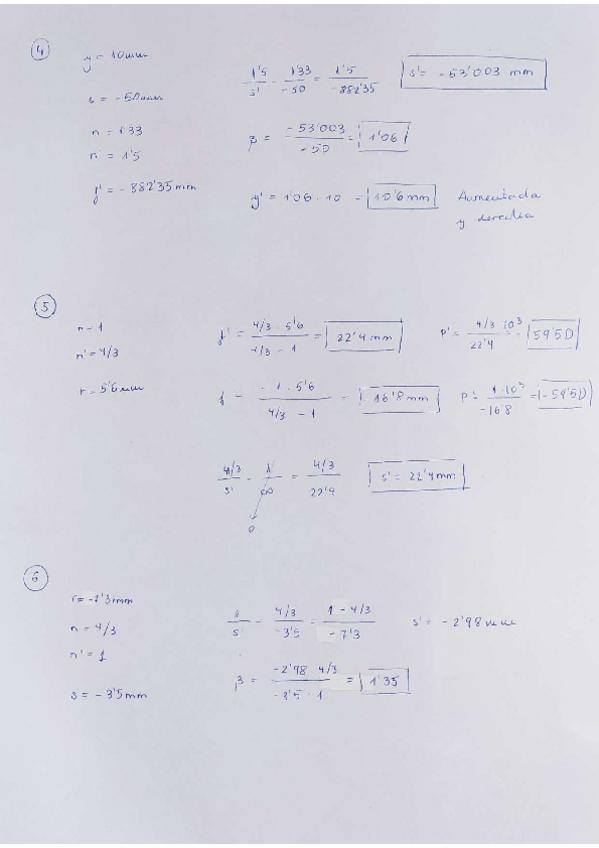 4
y = 10mm
s = -50mm
n = 1'33
n' = 1'5
f' = -882'35mm
1'5/s' - 1'33/-50 = 1'5/-882'35
s' = -53'003 mm
β = -53'003/-50 = 1'06
y' = 1'06 · 10 = 10'6mm Aumentada
y derecha
5
n = 1
n' = 4/3
r = 5'6mm
f' = 4/3 · 5'6 / 4/3 - 1 = 22'4 mm
P' = 4/3 · 10³ / 22'4 = 59'5D
f = -1 · 5'6 / 4/3 - 1 = 16'8 mm
P = 1 · 10³ / -16'8 = -59'5D
4/3 / s' - 1/∞ = 4/3 / 22'4
s' = 22'4mm
0
6
r = -7'3mm
n = 4/3
n' = 1
s = -3'5mm
1/s' - 4/3 / -3'5 = 1 - 4/3 / -7'3
s' = -2'98mm
β = -2'98 4/3 / -3'5 · 1 = 1'35